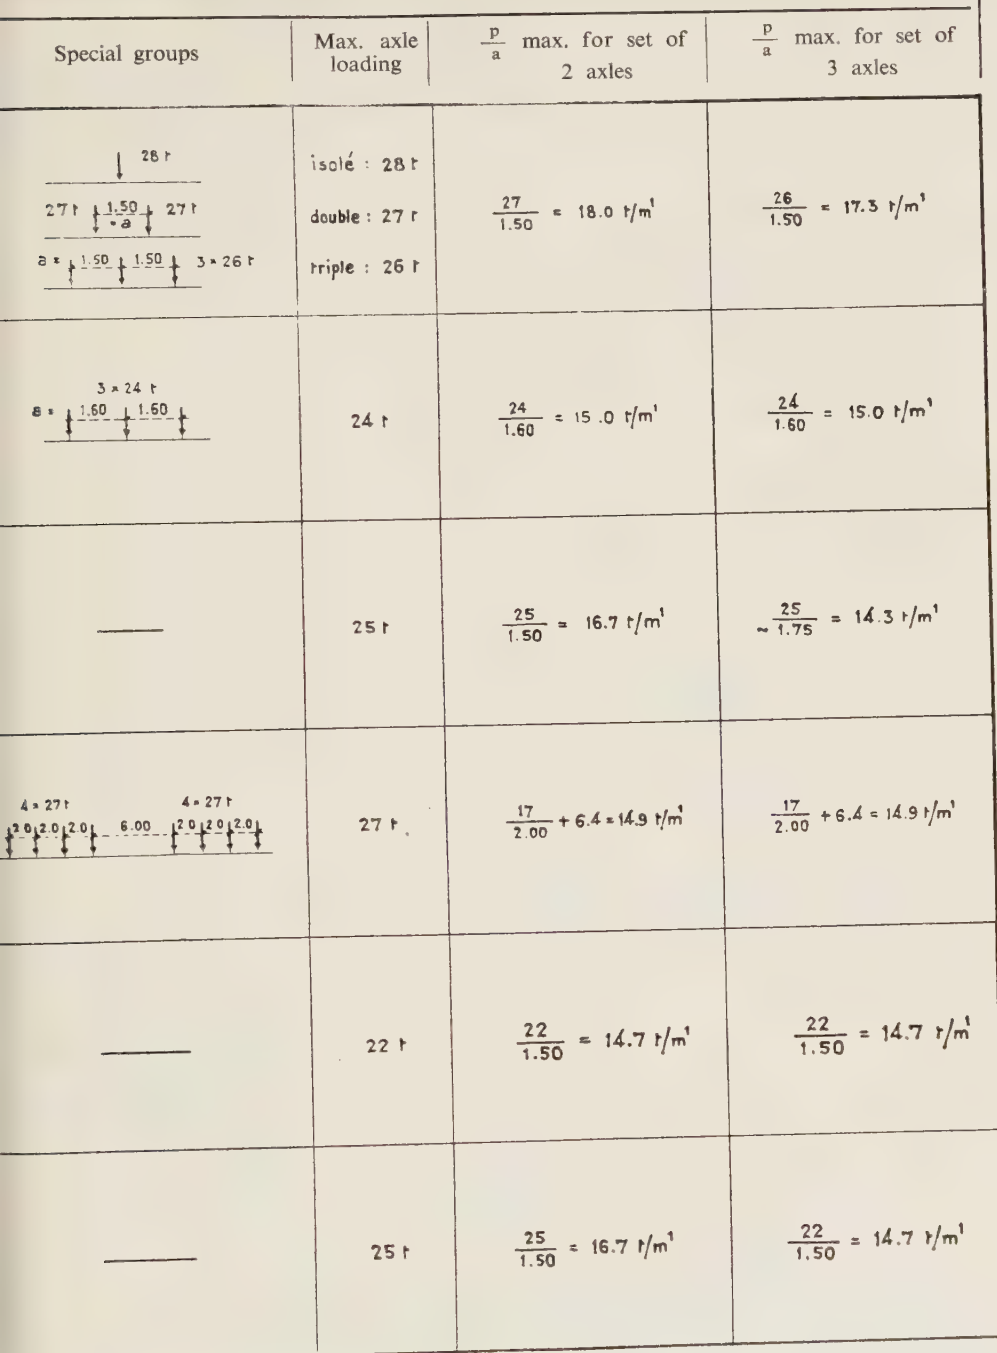 Special groups
Max. axle loading
p/a max. for set of 2 axles
p/a max. for set of 3 axles
28 t
27 t 1.50 27 t
= a
a = 1.50 1.50 3 × 26 t
isolé : 28 t
double : 27 t
triple : 26 t
27/1.50 = 18.0 t/m¹
26/1.50 = 17.3 t/m¹
3 × 24 t
a = 1.60 1.60
24 t
24/1.60 = 15.0 t/m¹
24/1.60 = 15.0 t/m¹
25 t
25/1.50 = 16.7 t/m¹
~ 25/1.75 = 14.3 t/m¹
4 × 27 t 4 × 27 t
2.0 2.0 2.0 6.00 2.0 2.0 2.0
27 t
17/2.00 + 6.4 = 14.9 t/m¹
17/2.00 + 6.4 = 14.9 t/m¹
22 t
22/1.50 = 14.7 t/m¹
22/1.50 = 14.7 t/m¹
25 t
25/1.50 = 16.7 t/m¹
22/1.50 = 14.7 t/m¹